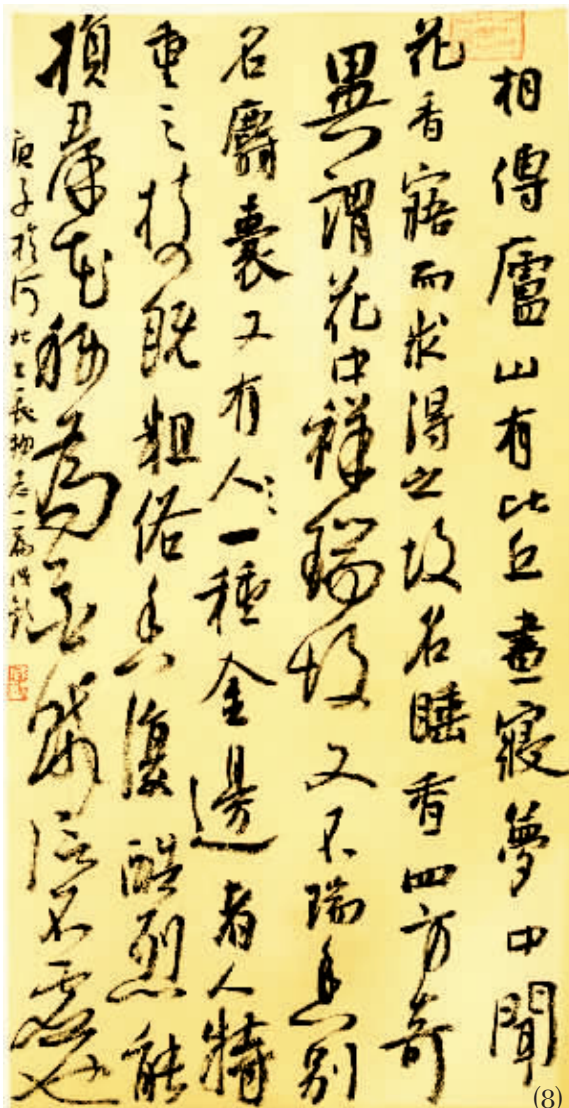 相傳廬山有比丘晝寢夢中聞
花香寤而求得之故名睡香四方奇
異謂花中祥瑞故又名瑞香別
名麝囊又有人一種金邊者人特
重之枝既粗俗香復酷烈能
損羣花稱為花賊信不虛也
庚子於河北書長物志一篇
(8)